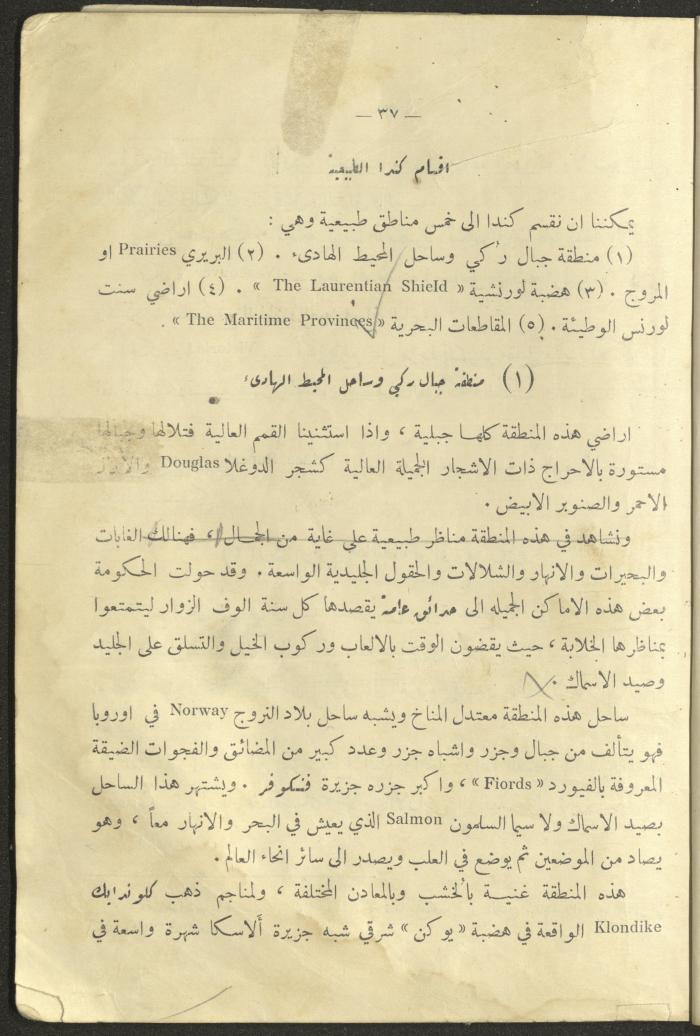 — ٣٧ —
اقسام كندا الطبيعية
يمكننا ان نقسم كندا الى خمس مناطق طبيعية وهي :
(١) منطقة جبال رُكي وساحل المحيط الهادىء . (٢) البريري Prairies او
المروج . (٣) هضبة لورنشية « The Laurentian Shield » . (٤) اراضي سنت
لورنس الوطيئة . (٥) المقاطعات البحرية « The Maritime Provinces » .
(١) منطقة جبال ركي وساحل المحيط الهادىء
اراضي هذه المنطقة كلهـا جبلية ، واذا استثنينا القمم العالية فتلالها وجبالها
مستورة بالاحراج ذات الاشجار الجميلة العالية كشجر الدوغلا Douglas والأرز
الاحمر والصنوبر الابيض .
ونشاهد في هذه المنطقة مناظر طبيعية على غاية من الجمـال ، فهنالك الغابات
والبحيرات والانهار والشلالات والحقول الجليدية الواسعة . وقد حولت الحكومة
بعض هذه الاماكن الجميله الى حدائق عامة يقصدها كل سنة الوف الزوار ليتمتعوا
بمناظرها الخلابة ، حيث يقضون الوقت بالالعاب وركوب الخيل والتسلق على الجليد
وصيد الاسماك .
ساحل هذه المنطقة معتدل المناخ ويشبه ساحل بلاد النروج Norway في اوروبا
فهو يتألف من جبال وجزر واشباه جزر وعدد كبير من المضائق والفجوات الضيقة
المعروفة بالفيورد « Fiords » ، واكبر جزره جزيرة فنكوفر . ويشتهر هذا الساحل
بصيد الاسماك ولا سيما السلمون Salmon الذي يعيش في البحر والانهار معاً ، وهو
يصاد من الموضعين ثم يوضع في العلب ويصدر الى سائر انحاء العالم .
هذه المنطقة غنيـة بالخشب وبالمعادن المختلفة ، ولمناجم ذهب كلوندايك
Klondike الواقعة في هضبة « يوكن » شرقي شبه جزيرة ألاسكا شهرة واسعة في